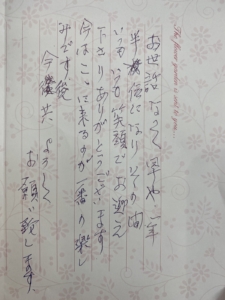 お世話なって早や一年
半になりその間
いつも いつも 笑顔で お迎え
下さりありがとうございます
今はここに来るのが一番の楽し
みです
今後共 よろしく
お願い致します